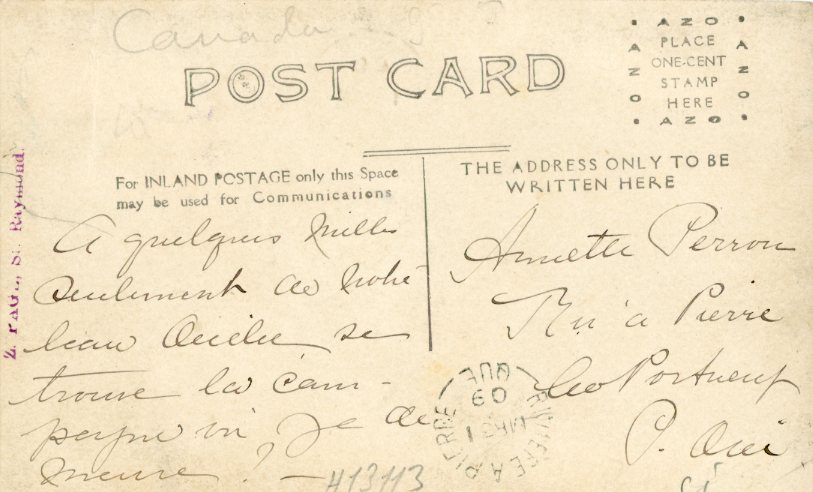 Canada
POST CARD
AZO
PLACE
ONE-CENT
STAMP
HERE
AZO
AZO
AZO
For INLAND POSTAGE only this Space
may be used for Communications
THE ADDRESS ONLY TO BE
WRITTEN HERE
Z. PAGÉ, St. Raymond.
A quelques milles
seulement de notre
beau Québec se
trouve la cam-
pagne où je de
meure! —
Annette Perron
Riv à Pierre
Co Portneuf
P. Qué
RIVIERE A PIERRE
QUE
09
H13113